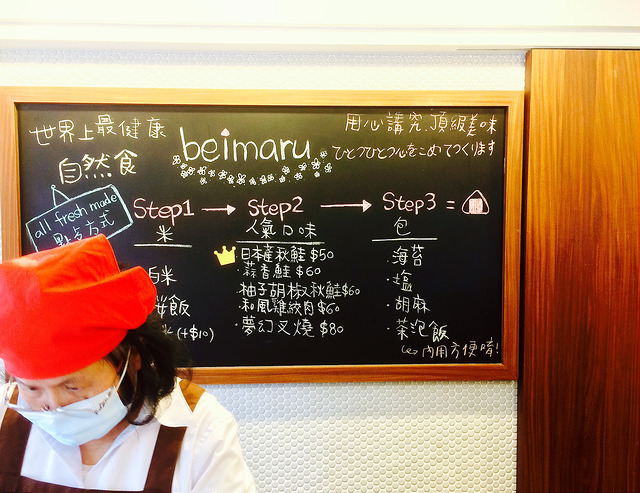 世界上最健康
自然食
beimaru
用心講究.頂級美味
ひとつひとつ心をこめてつくります
all fresh made
點点方式
Step1 → Step2 → Step3 =
米
白米
飯
米 (+$10)
人氣口味
日本產秋鮭 $50
·蒜香鮭 $60
·柚子胡椒秋鮭$60
·和風雞絞肉$60
·夢幻叉燒 $80
包
·海苔
·塩
·胡麻
·茶泡飯
內用方便唷!